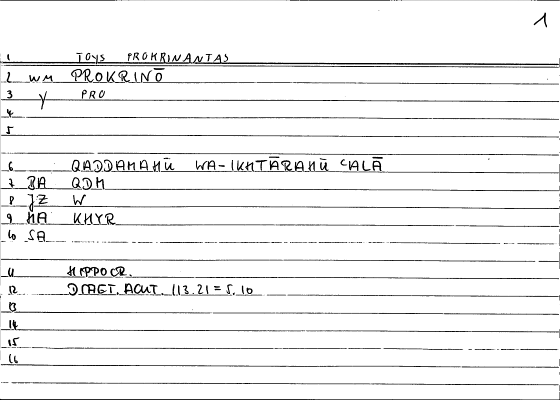 1
1 TOYS PROKRINANTAS
2 WM PROKRINŌ
3 Y PRO
4
5
6 QADDAMAHŪ WA-IKHTĀRAHŪ ʿALĀ
7 BA QDM
8 JZ W
9 MA KHYR
10 SA
11 HIPPOCR.
12 DIAET. ACUT. 113.21 = 5.10
13
14
15
16